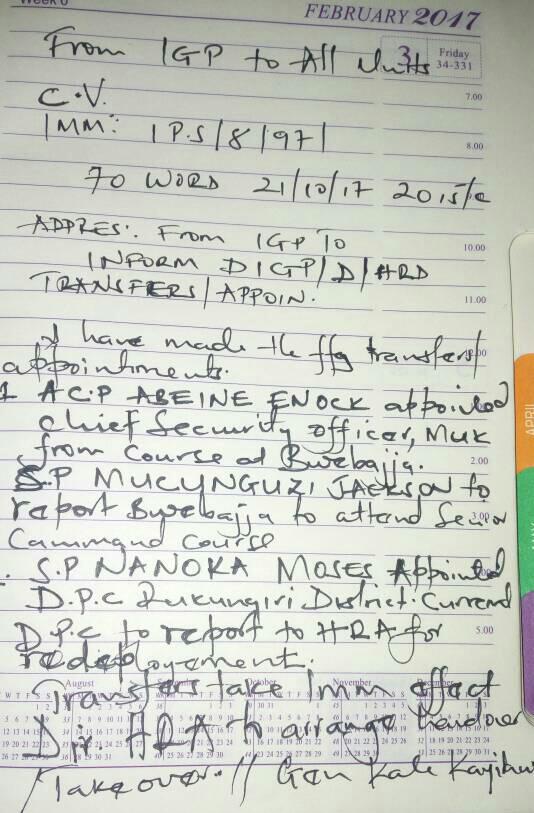 Week 6
FEBRUARY 2017
3 Friday
34-331
From IGP to All Units
7.00
C.V.
IMM: IPS/8/97/
8.00
70 WORD 21/10/17 2015/c
ADDRES: From IGP To
10.00
INFORM DIGP/D/HRD
TRANSFERS/APPOIN.
11.00
I have made the ffg transfers/
12.00
appointments.
1 A.C.P ABEINE ENOCK appointed
Chief Security officer, MUK
from Course at Bwebajja.
2.00
S.P MUCUNGUZI JACKSON to
report Bwebajja to attend Senior
3.00
Command Course
S.P NANOKA MOSES Appointed
D.P.C Rukungiri District. Current
D.P.C to report to HRA for
5.00
redeployement.
August October November
Transfers take Imm effect
Dir. HRA to arrange handover
/Takeover.// Gen Kale Kayihur
APRIL